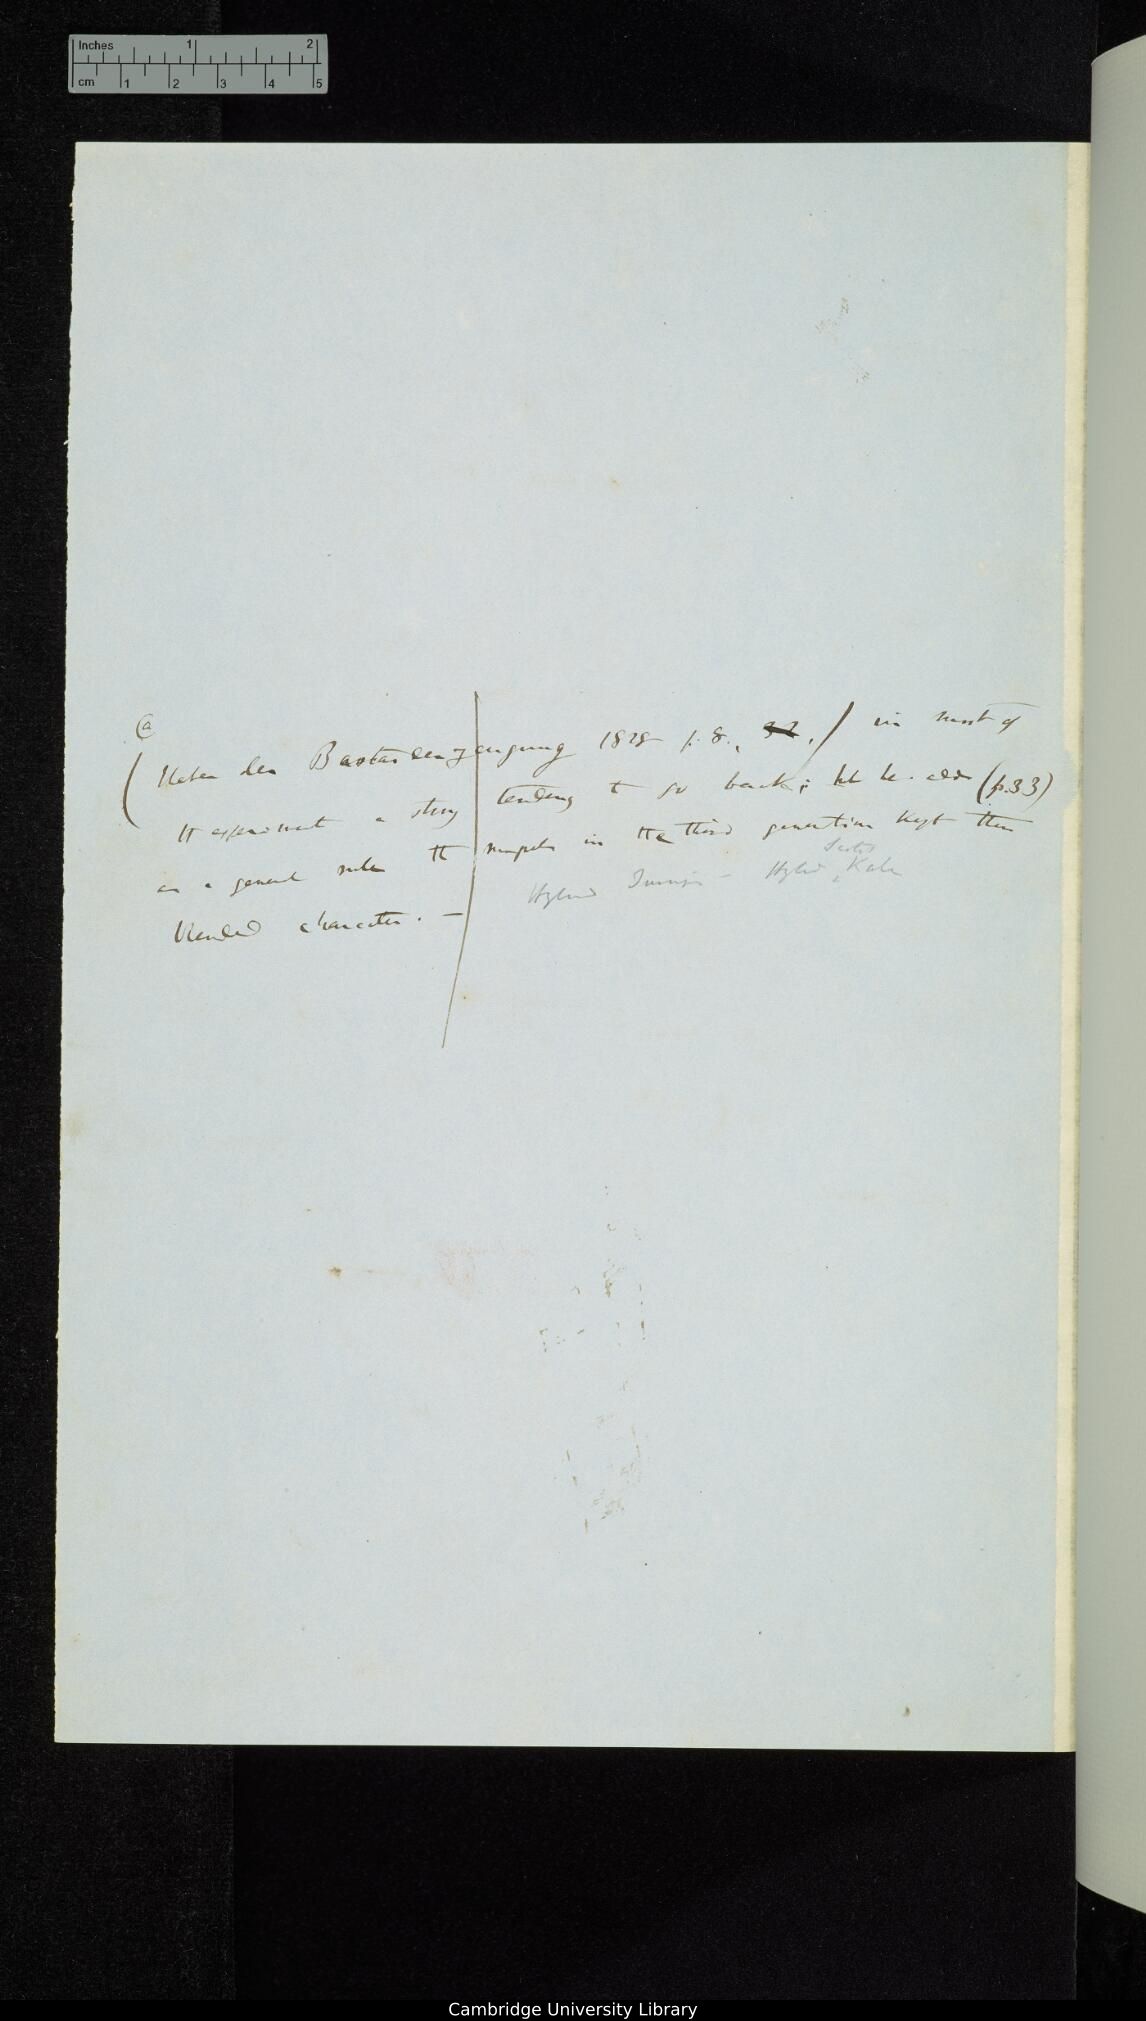 Inches 1 2
cm 1 2 3 4 5
(a
(Ueber den Bastardenzeugung 1828 p. 8., 32./ in most of
the experiments a strong tendency to go back; but he adds (p.33)
as a general rule the in the third generation kept their
blended character. —
Hybrid – Scotch
Hybrid Kale
Cambridge University Library